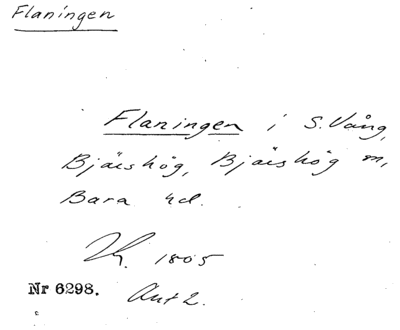 Flaningen
Flaningen i S. Vång,
Bjäeshög, Bjäeshög m,
Bara hd.
1805
Nr 6298. Akt 2.